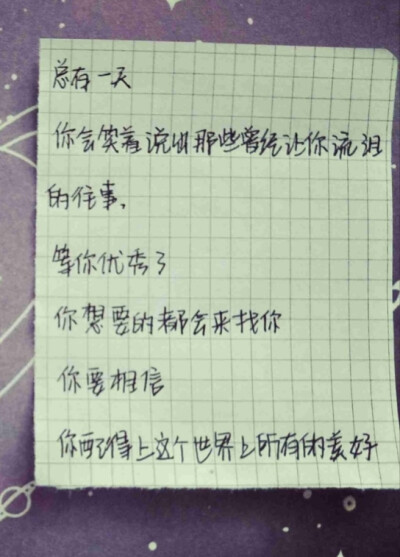 总有一天
你会笑着说出那些曾经让你流泪
的往事,
等你优秀了
你想要的都会来找你
你要相信
你配得上这个世界上所有的美好